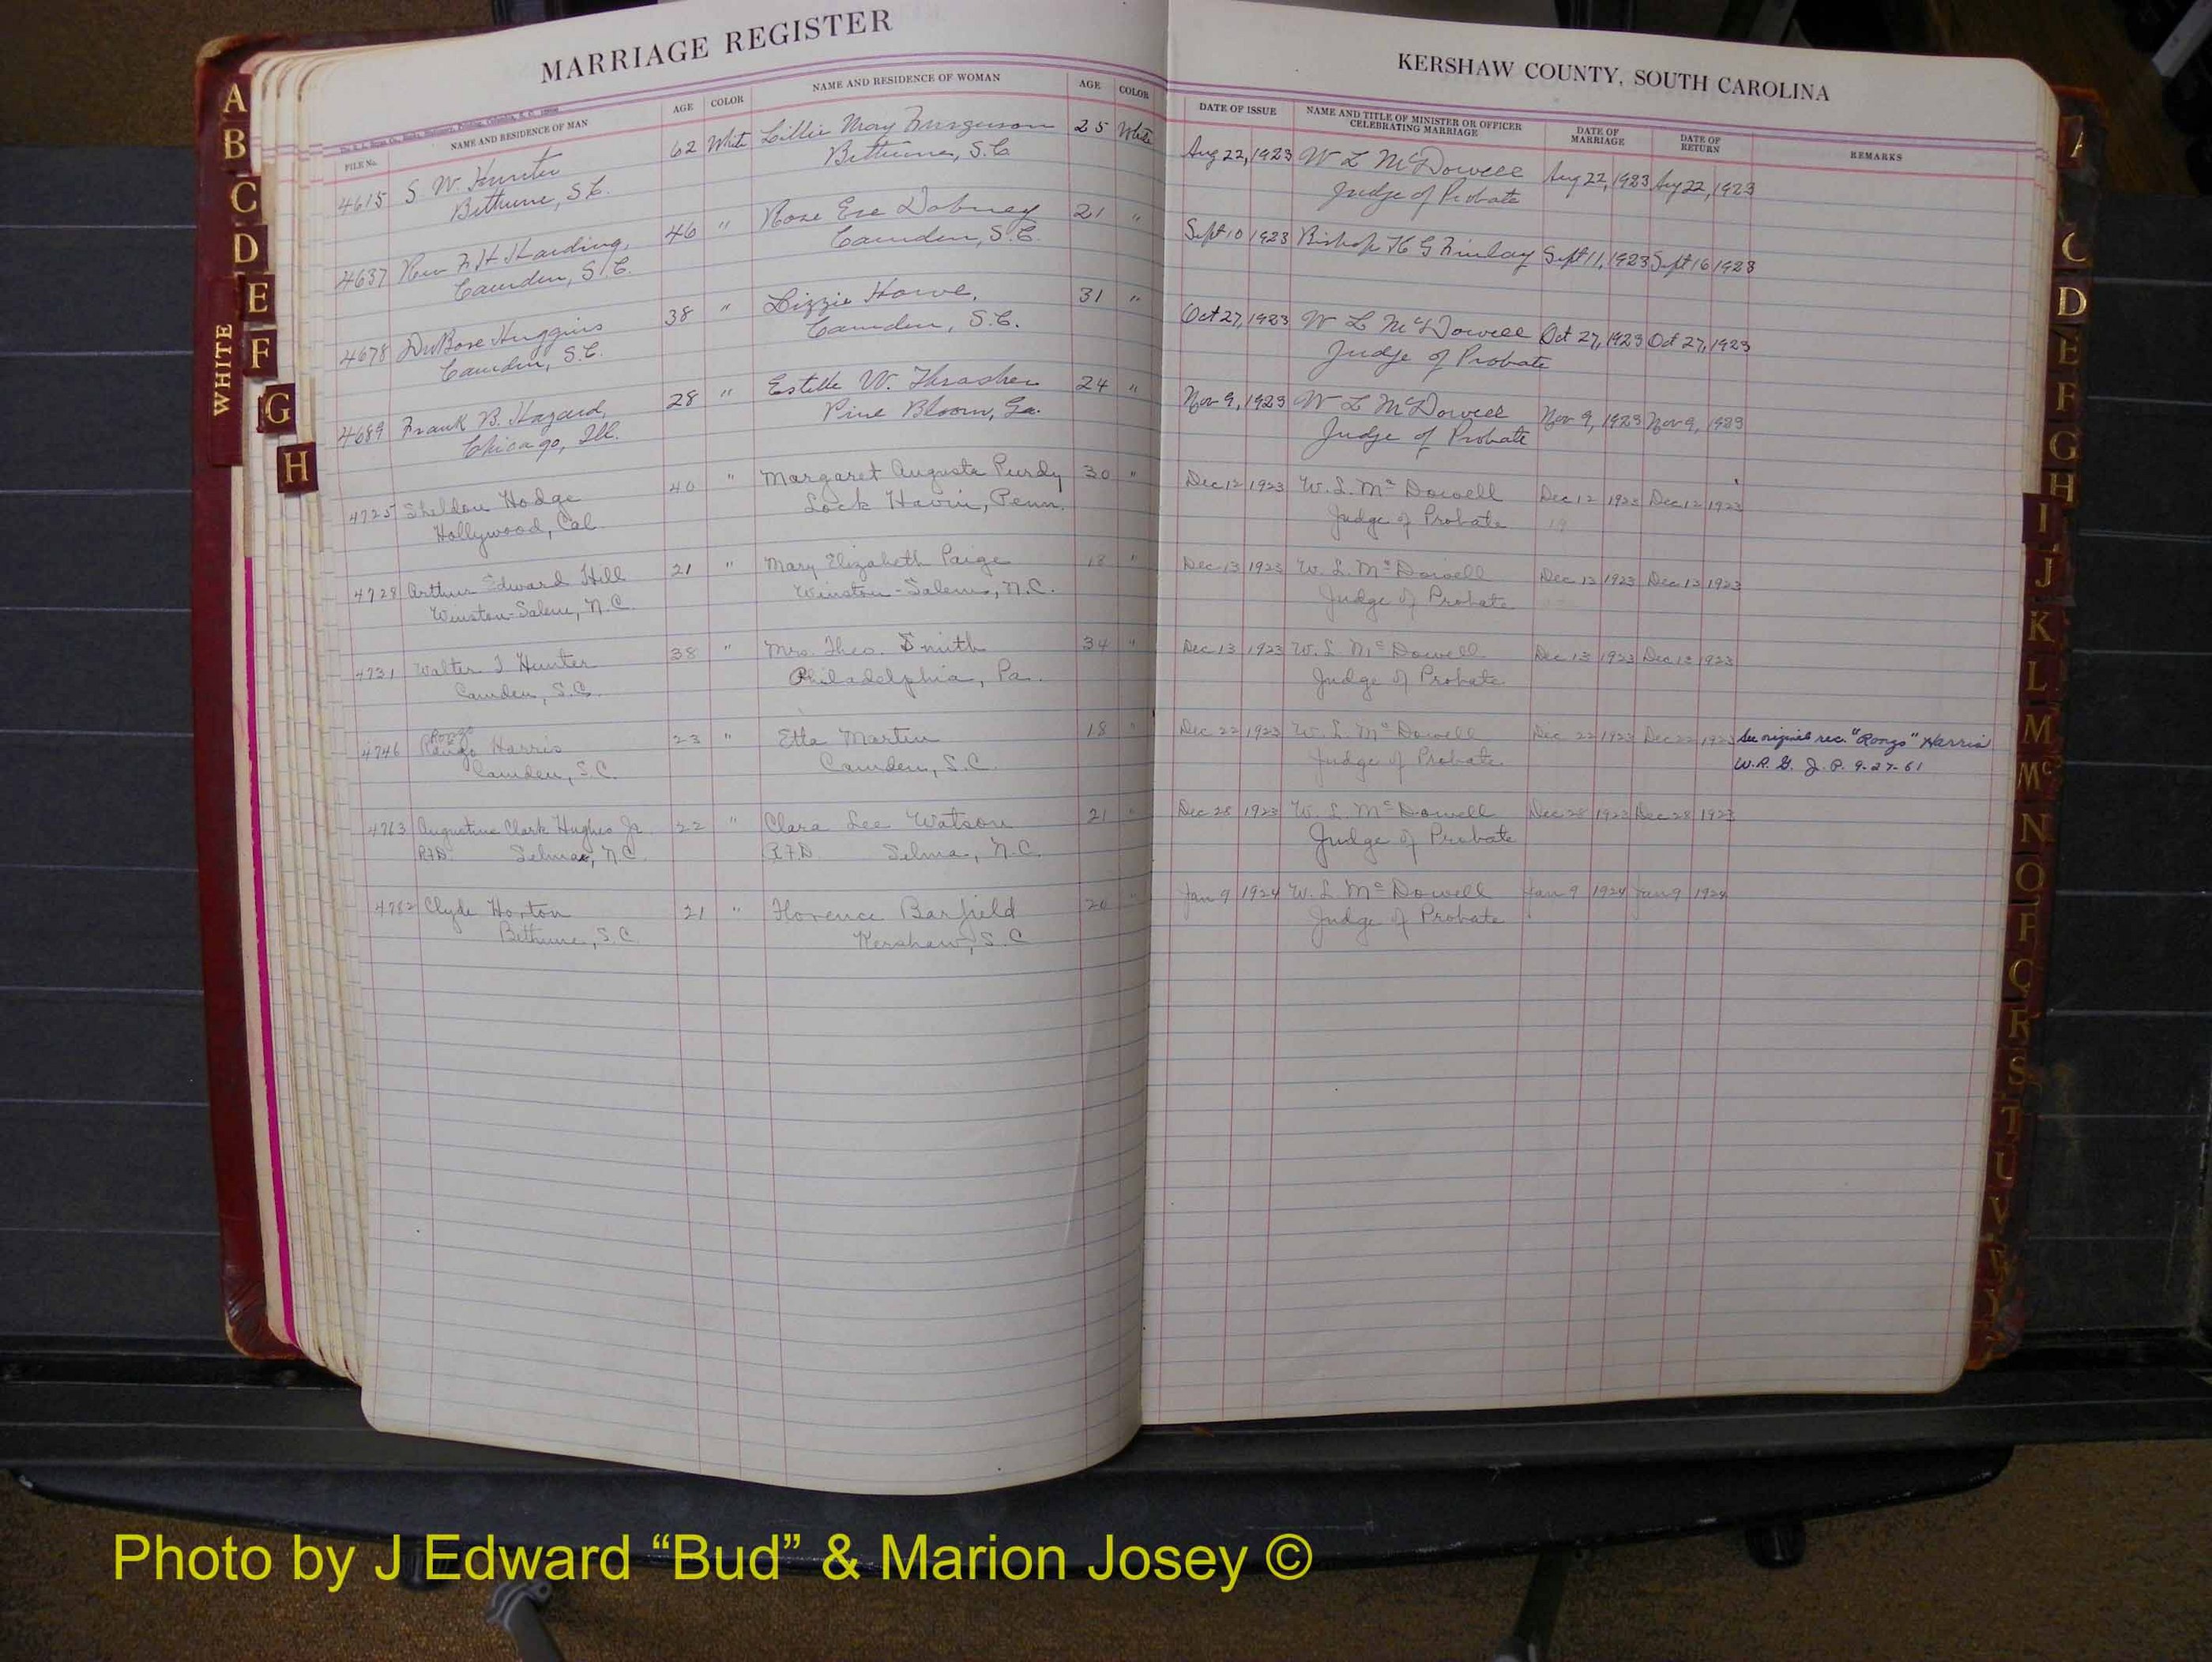 MARRIAGE REGISTER
KERSHAW COUNTY, SOUTH CAROLINA
FILE No. NAME AND RESIDENCE OF MAN AGE COLOR NAME AND RESIDENCE OF WOMAN AGE COLOR DATE OF ISSUE NAME AND TITLE OF MINISTER OR OFFICER CELEBRATING MARRIAGE DATE OF MARRIAGE DATE OF RETURN REMARKS
4615 S. W. Hunter 62 White Lillie May Furguson 25 White Aug 22, 1923 W L McDowell Aug 22, 1923 Aug 22, 1923
Bethune, S.C. Bethune, S.C. Judge of Probate
4637 Rev F. H. Harding, 46 " Rose Eve Dabney 21 " Sept 10 1923 Bishop K G Finlay Sept 11, 1923 Sept 16 1923
Camden, S.C. Camden, S.C.
4678 DuBose Huggins 38 " Lizzie Howe, 31 " Oct 27, 1923 W L McDowell Oct 27, 1923 Oct 27, 1923
Camden, S.C. Camden, S.C. Judge of Probate
4689 Frank B. Hazard, 28 " Estelle W. Thrasher 24 " Nov 9, 1923 W L McDowell Nov 9, 1923 Nov 9, 1923
Chicago, Ill. Pine Bloom, Ga. Judge of Probate
4725 Sheldon Hodge 40 " Margaret Augusta Purdy 30 " Dec 12 1923 W. L. McDowell Dec 12 1923 Dec 12 1923
Hollywood, Cal. Lock Havin, Penn. Judge of Probate
4728 Arthur Edward Hill 21 " Mary Elizabeth Paige 18 " Dec 13 1923 W. L. McDowell Dec 13 1923 Dec 13 1923
Winston-Salem, N.C. Winston-Salem, N.C. Judge of Probate
4731 Walter J Hunter 38 " Mrs. Theo. Smith 34 " Dec 13 1923 W. L McDowell Dec 13 1923 Dec 13 1923
Camden, S.C. Philadelphia, Pa. Judge of Probate
Rongo
4746 Rango Harris 23 " Etta Martin 18 " Dec 22 1923 W. L McDowell Dec 22 1923 Dec 22 1923 See original rec. "Rongo" Harris
Camden, S.C. Camden, S.C. Judge of Probate W.R.G. J.P. 9-27-61
4763 Augustine Clark Hughes Jr. 22 " Clara Lee Watson 21 " Dec 28 1923 W. L. McDowell Dec 28 1923 Dec 28 1923
RFD. Selma, N.C. R.F.D. Selma, N.C. Judge of Probate
4782 Clyde Horton 21 " Florence Barfield 20 " Jan 9 1924 W. L. McDowell Jan 9 1924 Jan 9 1924
Bethune, S.C. Kershaw, S.C Judge of Probate
WHITE
A
B
C
D
E
F
G
H
A
C
D
E
F
G
H
I
J
K
L
M
Mc
N
O
P
Q
R
S
T
U
V
Photo by J Edward “Bud” & Marion Josey ©